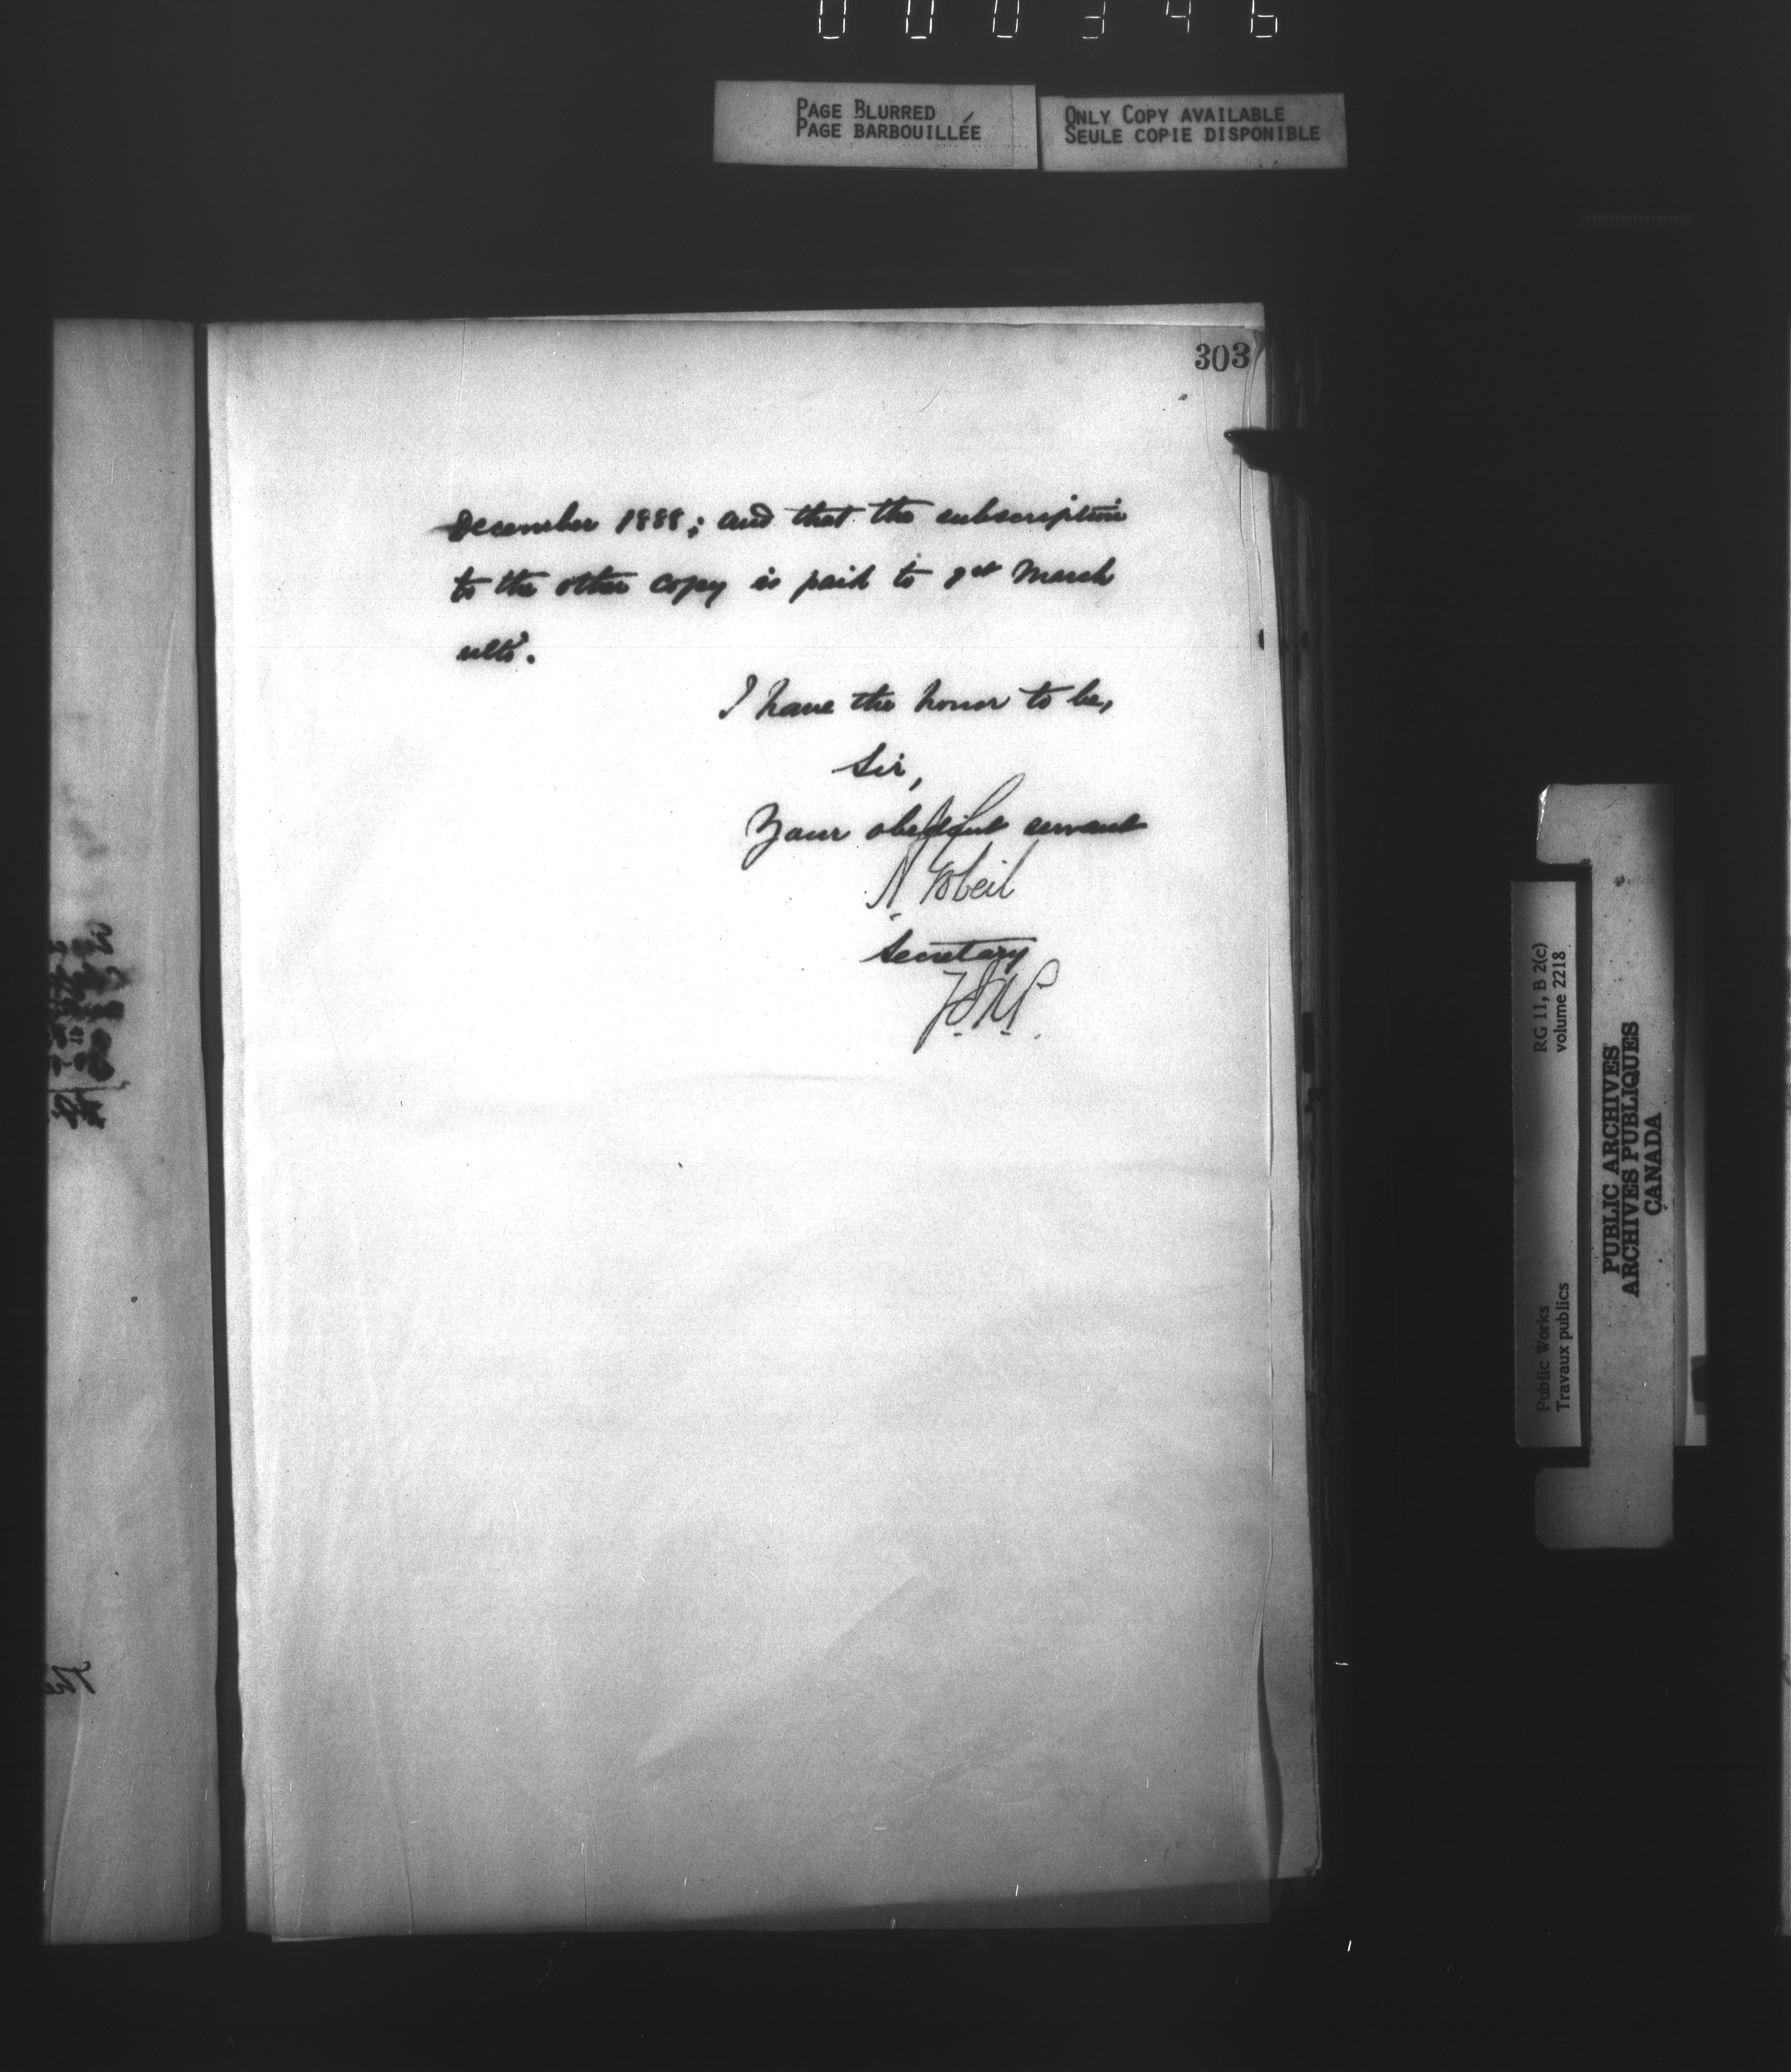 000346
PAGE BLURRED
PAGE BARBOUILLÉE
ONLY COPY AVAILABLE
SEULE COPIE DISPONIBLE
303
December 1888; and that the subscription
to the other copy is paid to 1st March
ulto.
I have the honor to be,
Sir,
Your obedient servant
A Gobeil
Secretary
RG 11, B 2(c)
volume 2218
Public Works
Travaux publics
PUBLIC ARCHIVES
ARCHIVES PUBLIQUES
CANADA